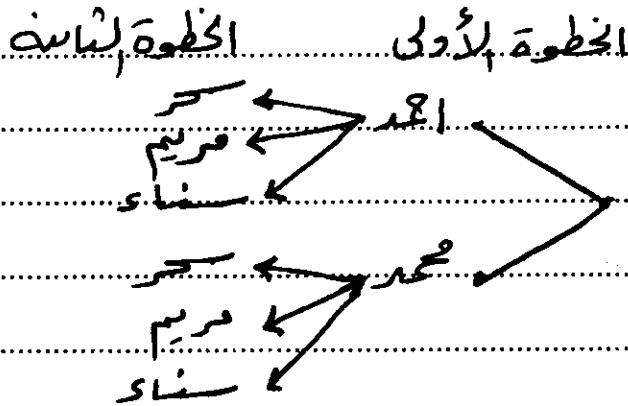 الخطوة الأولى الخطوة الثانية
احمد سحر
مريم
سناء
محمد سحر
مريم
سناء